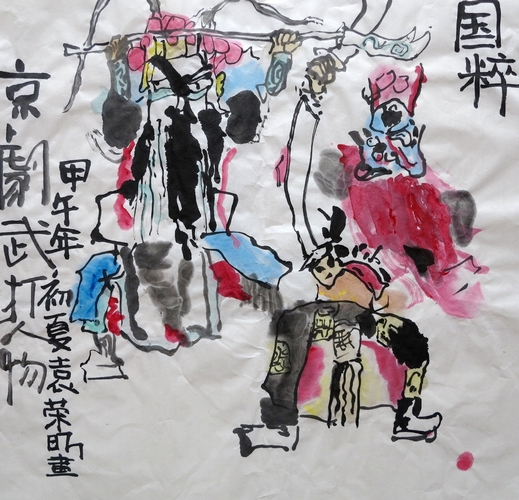 国粹
京劇武打人物
甲午年初夏袁荣明畫